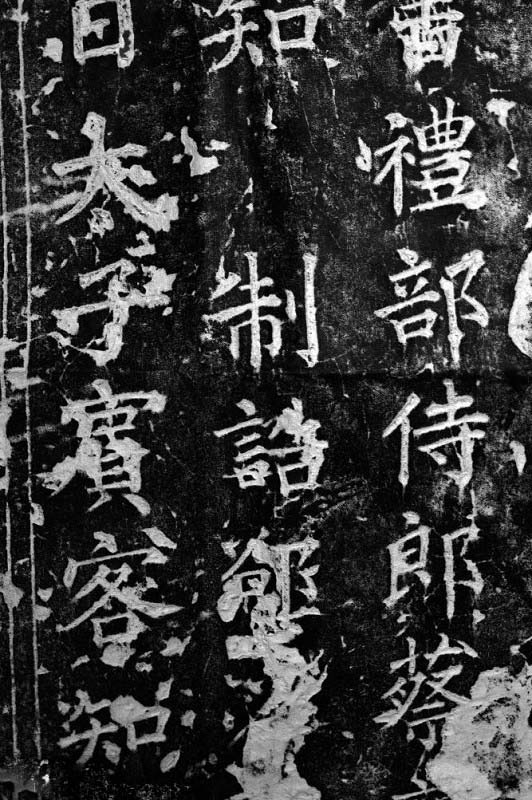 書禮部侍郎蔡
知制誥
日太子賓客知